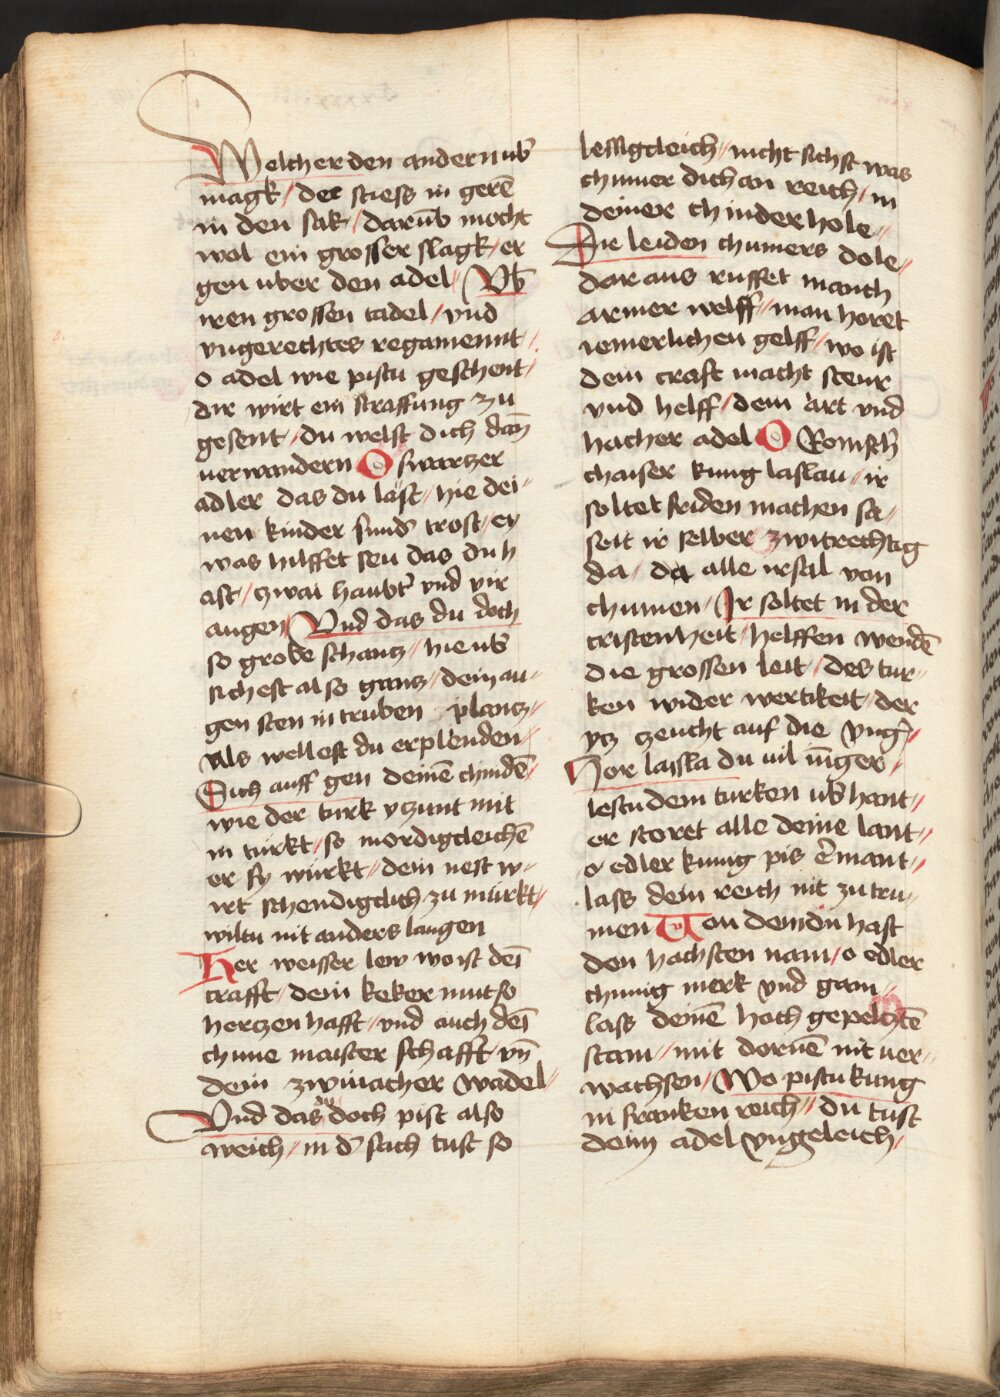 Welcher den andern ub̄
magk / der stiess in gerē
in den sak / darūb mocht
wol ein grosser slagk / er
gen uber den adel / Vb̄
iren grossen tadel / vnd
vngerechtes regament /
o adel wie pistu geschent /
dir wirt ein straffung zu
gesent / du welst dich dañ
uerwandern O swarczer
adler das du läst / hie dei
nen kinder sund trost / ey
was hilffet seu das du h
ast / czwai haubt̄ vnd vir
augen / Vnd das du doch
so grobe schancz / hie ub̄
sichest also gancz / dein au
gen sten in truben plancz /
Als wellest du erplenden /
Sich auff gen deinē chindē /
wie der turk yczunt mit
in türkt / so mordigcleichē
er sy würkt / dein nest w
irt schendigclich zu mürkt /
wiltu nit anders laugen
Her weisser lew wo ist deī
crafft / dein keker mut so
herczen hafft / vnd auch deī
chune maister schafft vn̄
dein zwinacher wadel /
Vnd das du doch pist also
weich / in d̄ sach tust so
lessigcleich / nicht sichst was
chumer dich an reich / in
deiner chinder hole /
Sie leiden chumers dole /
dar aus ruffet manch
armer welff / man horet
iemerlichen gelff / wo ist
dein craft macht steur
vnd helff / dem art vnd
hacher adel O Romsch̄
chaiser kung laslau / ir
soltet friden machen sa /
seit ir selber zwitrechtig
da / da alle irsal von
chumen / Ir soltet in der
cristenheit / helffen wendē
die grossen leit / des tur
ken wider wertikeit / der
ycz czeucht auf die Vnḡ /
Hor lassla du vil iūger /
lestu dem turken ub̄ hant /
er storet alle deine lant /
o edler kunig pis ērmant /
lass dem reich nit zu tru
men Von dem du hast
den hachsten nam / o edler
chunig merk vnd gam /
lass deinē hoch gepelcztē
stam / mit dornē nit uer
wachsen / Wo pistu kung
in franken reich / du tust
deim adel vngeleich /